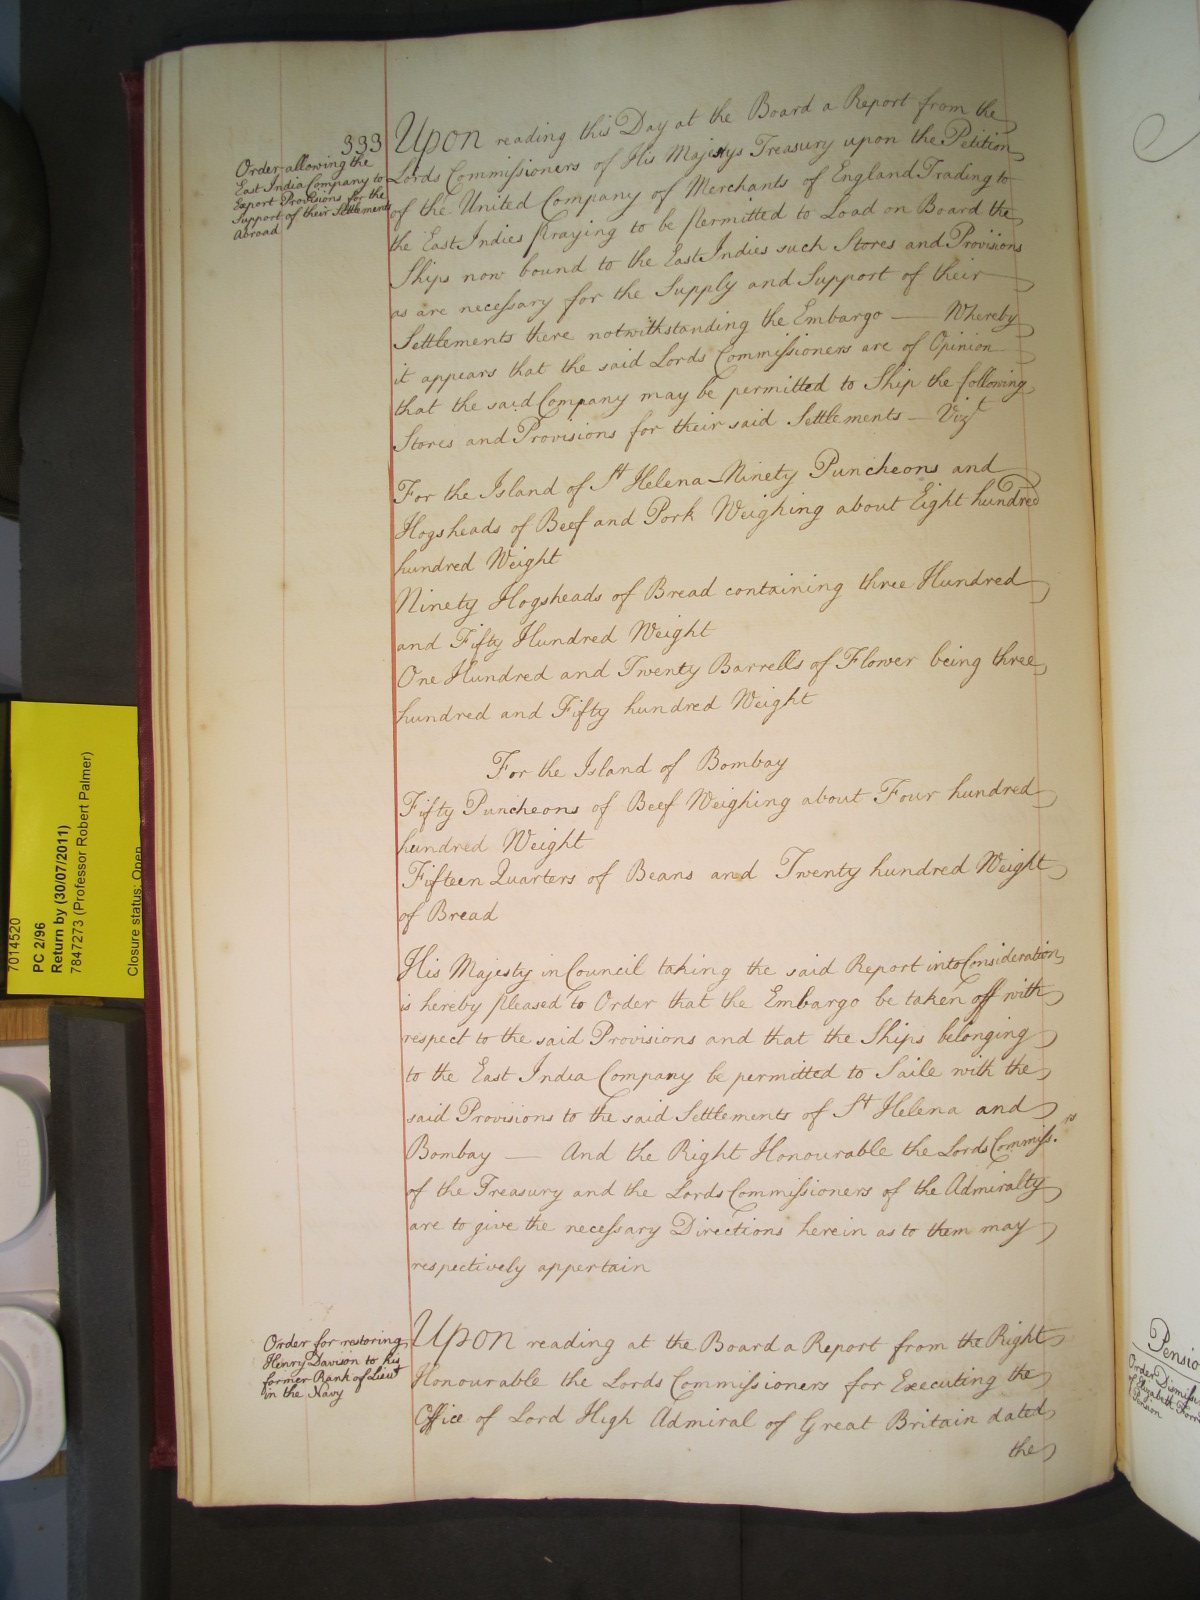 333
Order allowing the
East India Company to
Export Provisions for the
Support of their Settlements
Abroad
Upon reading this Day at the Board a Report from the
Lords Commissioners of His Majestys Treasury upon the Petition
of the United Company of Merchants of England Trading to
the East Indies praying to be permitted to Load on Board the
Ships now bound to the East Indies such Stores and Provisions
as are necessary for the Supply and Support of their
Settlements there notwithstanding the Embargo — Whereby
it appears that the said Lords Commissioners are of Opinion
that the said Company may be permitted to Ship the following
Stores and Provisions for their said Settlements — Vizt
For the Island of St Helena - Ninety Puncheons and
Hogsheads of Beef and Pork Weighing about Eight hundred
hundred Weight
Ninety Hogsheads of Bread containing three Hundred
and Fifty Hundred Weight
One Hundred and Twenty Barrells of Flower being three
hundred and Fifty hundred Weight
For the Island of Bombay
Fifty Puncheons of Beef Weighing about Four hundred
hundred Weight
Fifteen Quarters of Beans and Twenty hundred Weight
of Bread
His Majesty in Council taking the said Report into Consideration
is hereby pleased to Order that the Embargo be taken off with
respect to the said Provisions and that the Ships belonging
to the East India Company be permitted to Saile with the
said Provisions to the said Settlements of St Helena and
Bombay — And the Right Honourable the Lords Commiss.rs
of the Treasury and the Lords Commissioners of the Admiralty
are to give the necessary Directions herein as to them may
respectively appertain
Order for restoring
Henry Davison to his
former Rank of Lieut
in the Navy
Upon reading at the Board a Report from the Right
Honourable the Lords Commissioners for Executing the
Office of Lord High Admiral of Great Britain dated
the
7014520
PC 2/96
Return by (30/07/2011)
7847273 (Professor Robert Palmer)
Closure status: Open
Pensio
Order
of Elizabeth
Pension